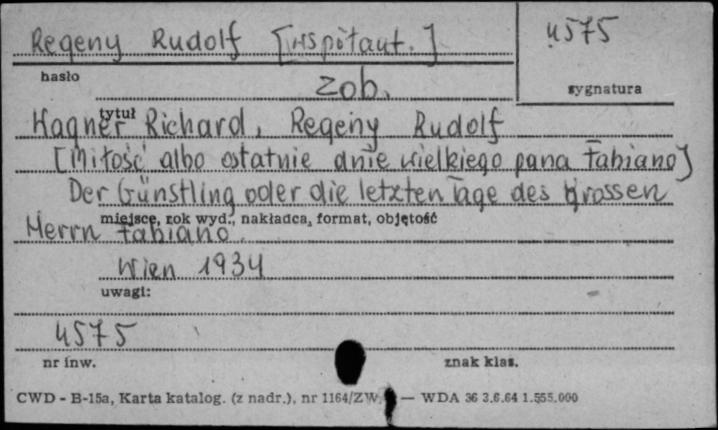 Regeny Rudolf [współaut.] 4575
hasło
zob. sygnatura
tytuł
Wagner Richard, Regeny Rudolf
[Miłość albo ostatnie dnie wielkiego pana Fabiano]
Der Günstling oder die letzten Tage des grossen
miejsce, rok wyd., nakładca, format, objętość
Herrn Fabiano.
Wien 1934
uwagi:
4575
nr inw. znak klas.
CWD - B-15a, Karta katalog. (z nadr.), nr 1164/ZW. — WDA 36 3.6.64 1.555.000